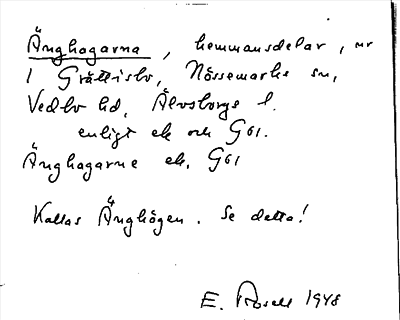 Änghagarna, hemmansdelar, nr
1 Grättisbo, Nössemarks sn,
Vedbo hd, Älvsborgs l.
enligt ek och G61.
Änghagarne ek, G61
Kallas Änghögen. Se detta!
E. Rosell 1948